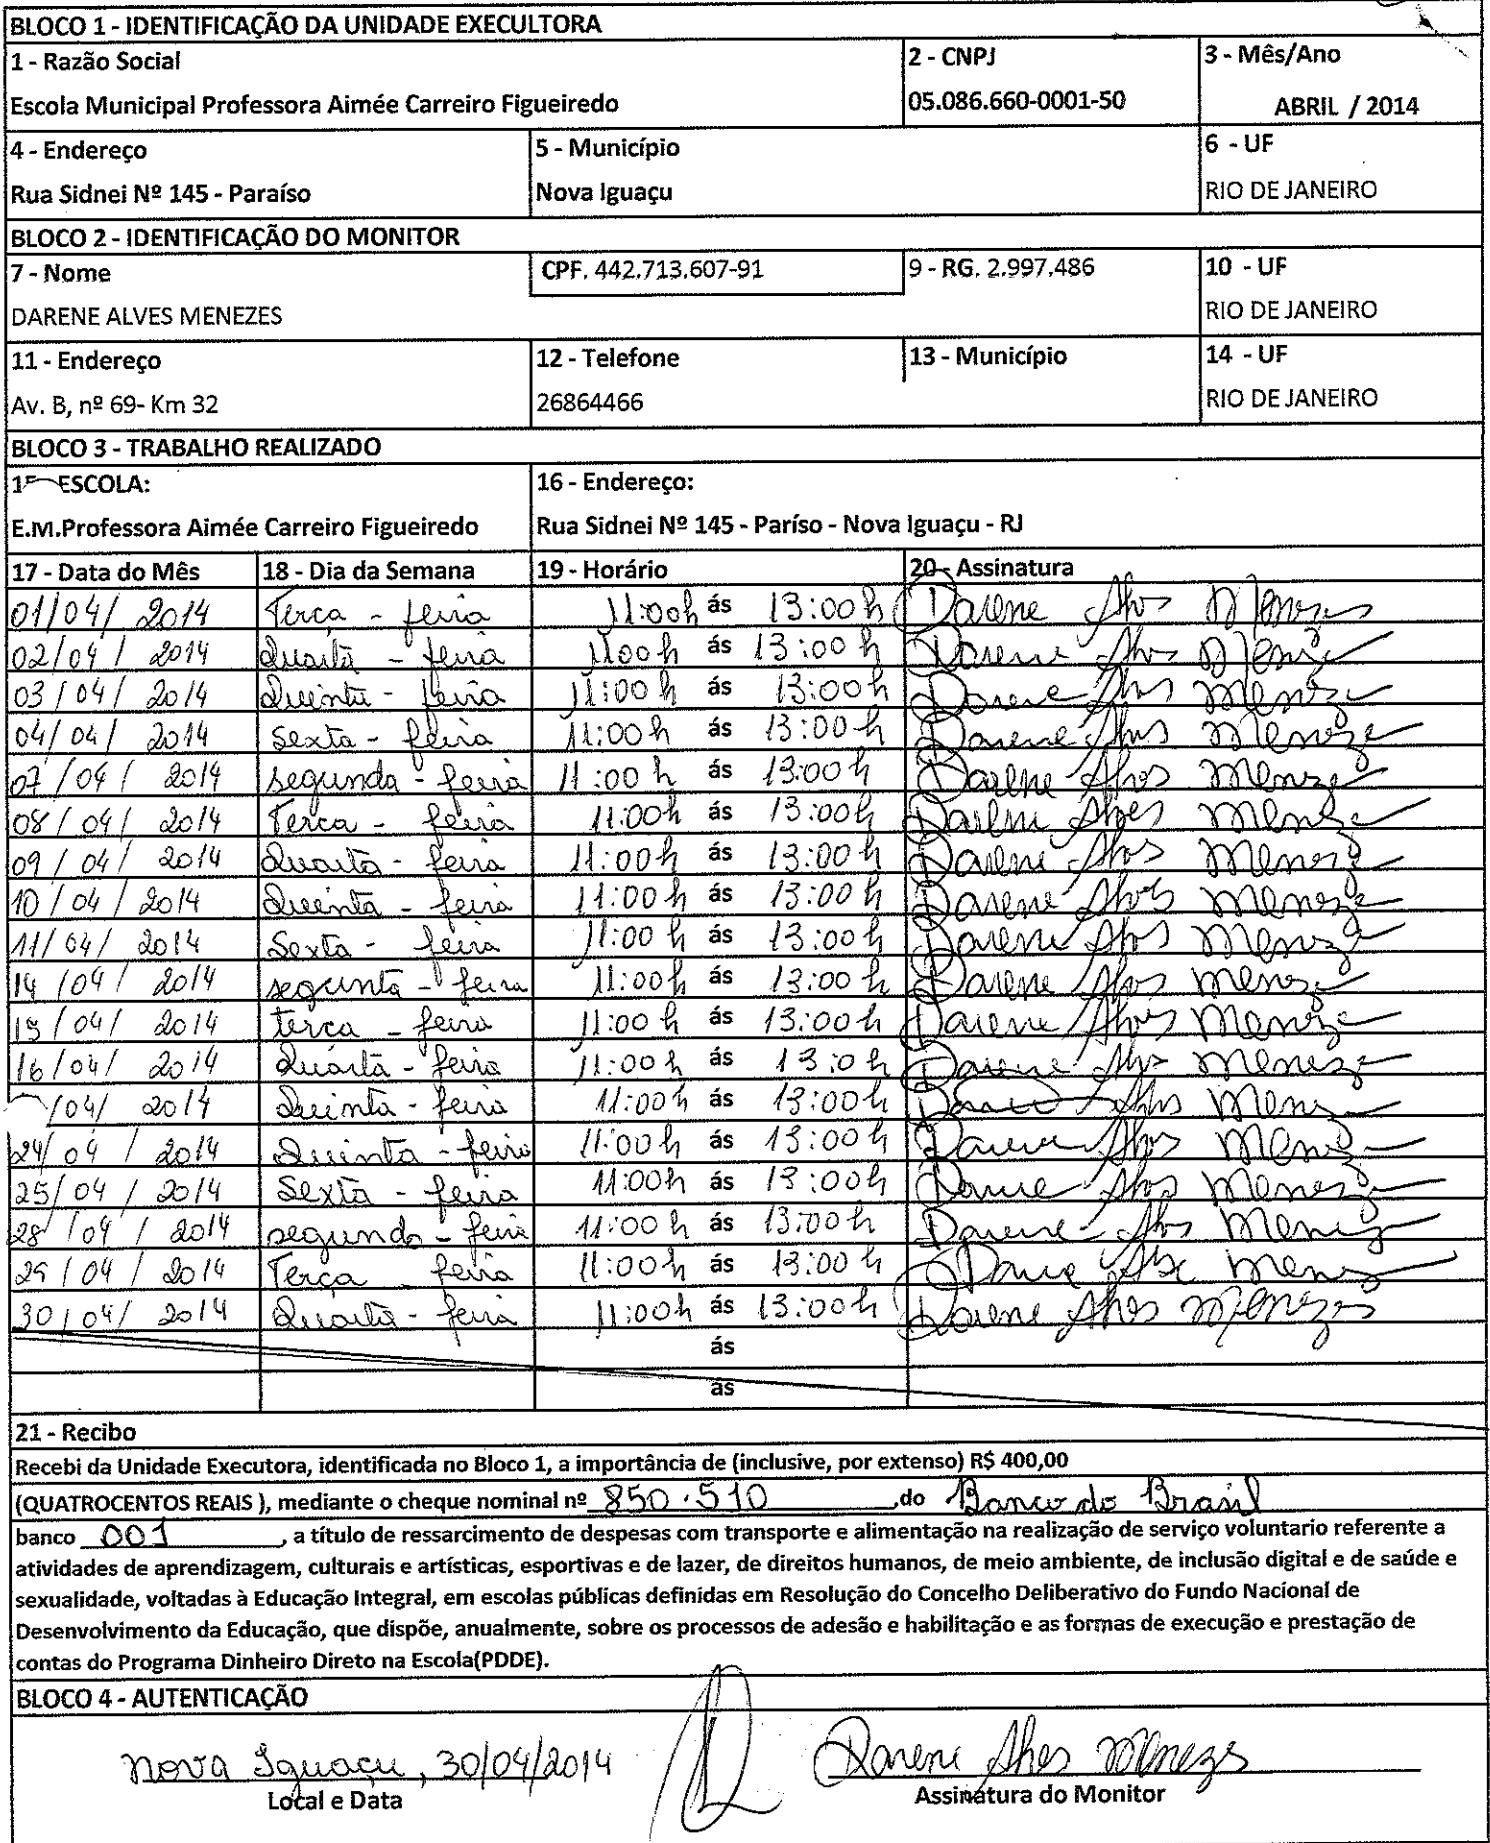 BLOCO 1 - IDENTIFICAÇÃO DA UNIDADE EXECULTORA
1 - Razão Social 2 - CNPJ 3 - Mês/Ano
Escola Municipal Professora Aimée Carreiro Figueiredo 05.086.660-0001-50 ABRIL / 2014
4 - Endereço 5 - Município 6 - UF
Rua Sidnei Nº 145 - Paraíso Nova Iguaçu RIO DE JANEIRO
BLOCO 2 - IDENTIFICAÇÃO DO MONITOR
7 - Nome CPF. 442.713.607-91 9 - RG. 2.997.486 10 - UF
DARENE ALVES MENEZES RIO DE JANEIRO
11 - Endereço 12 - Telefone 13 - Município 14 - UF
Av. B, nº 69- Km 32 26864466 RIO DE JANEIRO
BLOCO 3 - TRABALHO REALIZADO
ESCOLA: 16 - Endereço:
E.M.Professora Aimée Carreiro Figueiredo Rua Sidnei Nº 145 - Paríso - Nova Iguaçu - RJ
17 - Data do Mês 18 - Dia da Semana 19 - Horário 20 - Assinatura
01/04/ 2014 Terça - feira 11:00h ás 13:00h Darene Alves Menezes
02/04/ 2014 Quarta - feira 1100h ás 13:00h Darene Alves Meneze
03/04/ 2014 Quinta - feira 11:00h ás 13:00h Darene Alves Meneze
04/04/ 2014 Sexta - feira 11:00h ás 13:00h Darene Alves Meneze
07/04/ 2014 segunda - feira 11:00h ás 13:00h Darene Alves Meneze
08/04/ 2014 Terça - feira 11:00h ás 13:00h Darene Alves Meneze
09/04/ 2014 Quarta - feira 11:00h ás 13:00h Darene Alves Meneze
10/04/ 2014 Quinta - feira 11:00h ás 13:00h Darene Alves Meneze
11/04/ 2014 Sexta - feira 11:00h ás 13:00h Darene Alves Meneze
14/04/ 2014 segunta - feira 11:00h ás 13:00h Darene Alves Meneze
15/04/ 2014 terça - feira 11:00h ás 13:00h Darene Alves Meneze
16/04/ 2014 Quarta - feira 11:00h ás 13:0h Darene Alves Meneze
/04/ 2014 Quinta - feira 11:00h ás 13:00h Alves Meneze
24/04/ 2014 Quinta - feira 11:00h ás 13:00h Darene Alves Meneze
25/04/ 2014 Sexta - feira 11:00h ás 13:00h Darene Alves Meneze
28/04/ 2014 segunda - feira 11:00h ás 13:00h Darene Alves Meneze
29/04/ 2014 Terça feira 11:00h ás 13:00h Darene Alves Meneze
30/04/ 2014 Quarta - feira 11:00h ás 13:00h Darene Alves Menezes
ás
ás
21 - Recibo
Recebi da Unidade Executora, identificada no Bloco 1, a importância de (inclusive, por extenso) R$ 400,00
(QUATROCENTOS REAIS ), mediante o cheque nominal nº 850.510 ,do Banco do Brasil
banco 001 , a título de ressarcimento de despesas com transporte e alimentação na realização de serviço voluntario referente a
atividades de aprendizagem, culturais e artísticas, esportivas e de lazer, de direitos humanos, de meio ambiente, de inclusão digital e de saúde e
sexualidade, voltadas à Educação Integral, em escolas públicas definidas em Resolução do Concelho Deliberativo do Fundo Nacional de
Desenvolvimento da Educação, que dispõe, anualmente, sobre os processos de adesão e habilitação e as formas de execução e prestação de
contas do Programa Dinheiro Direto na Escola(PDDE).
BLOCO 4 - AUTENTICAÇÃO
Nova Iguaçu, 30/04/2014 Darene Alves Menezes
Local e Data Assinatura do Monitor